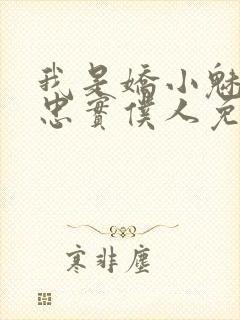 我是嬌小魅
忠實僕人兔
寒非塵